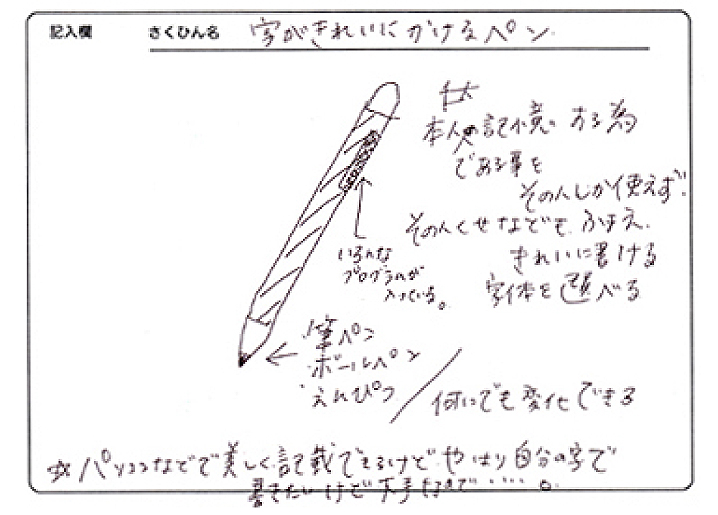 記入欄 さくひん名 字がきれいにかけるペン
本人の記憶する為
である事を
その人しか使えず
その人くせなどもふまえ、
きれいに書ける
字体を選べる
いろんな
プログラムが
入っている。
・筆ペン
・ボールペン
・えんぴつ
何にでも変化できる
☆パソコンなどで美しく記載できるけどやはり自分の字で
書きたいけど下手なので……。